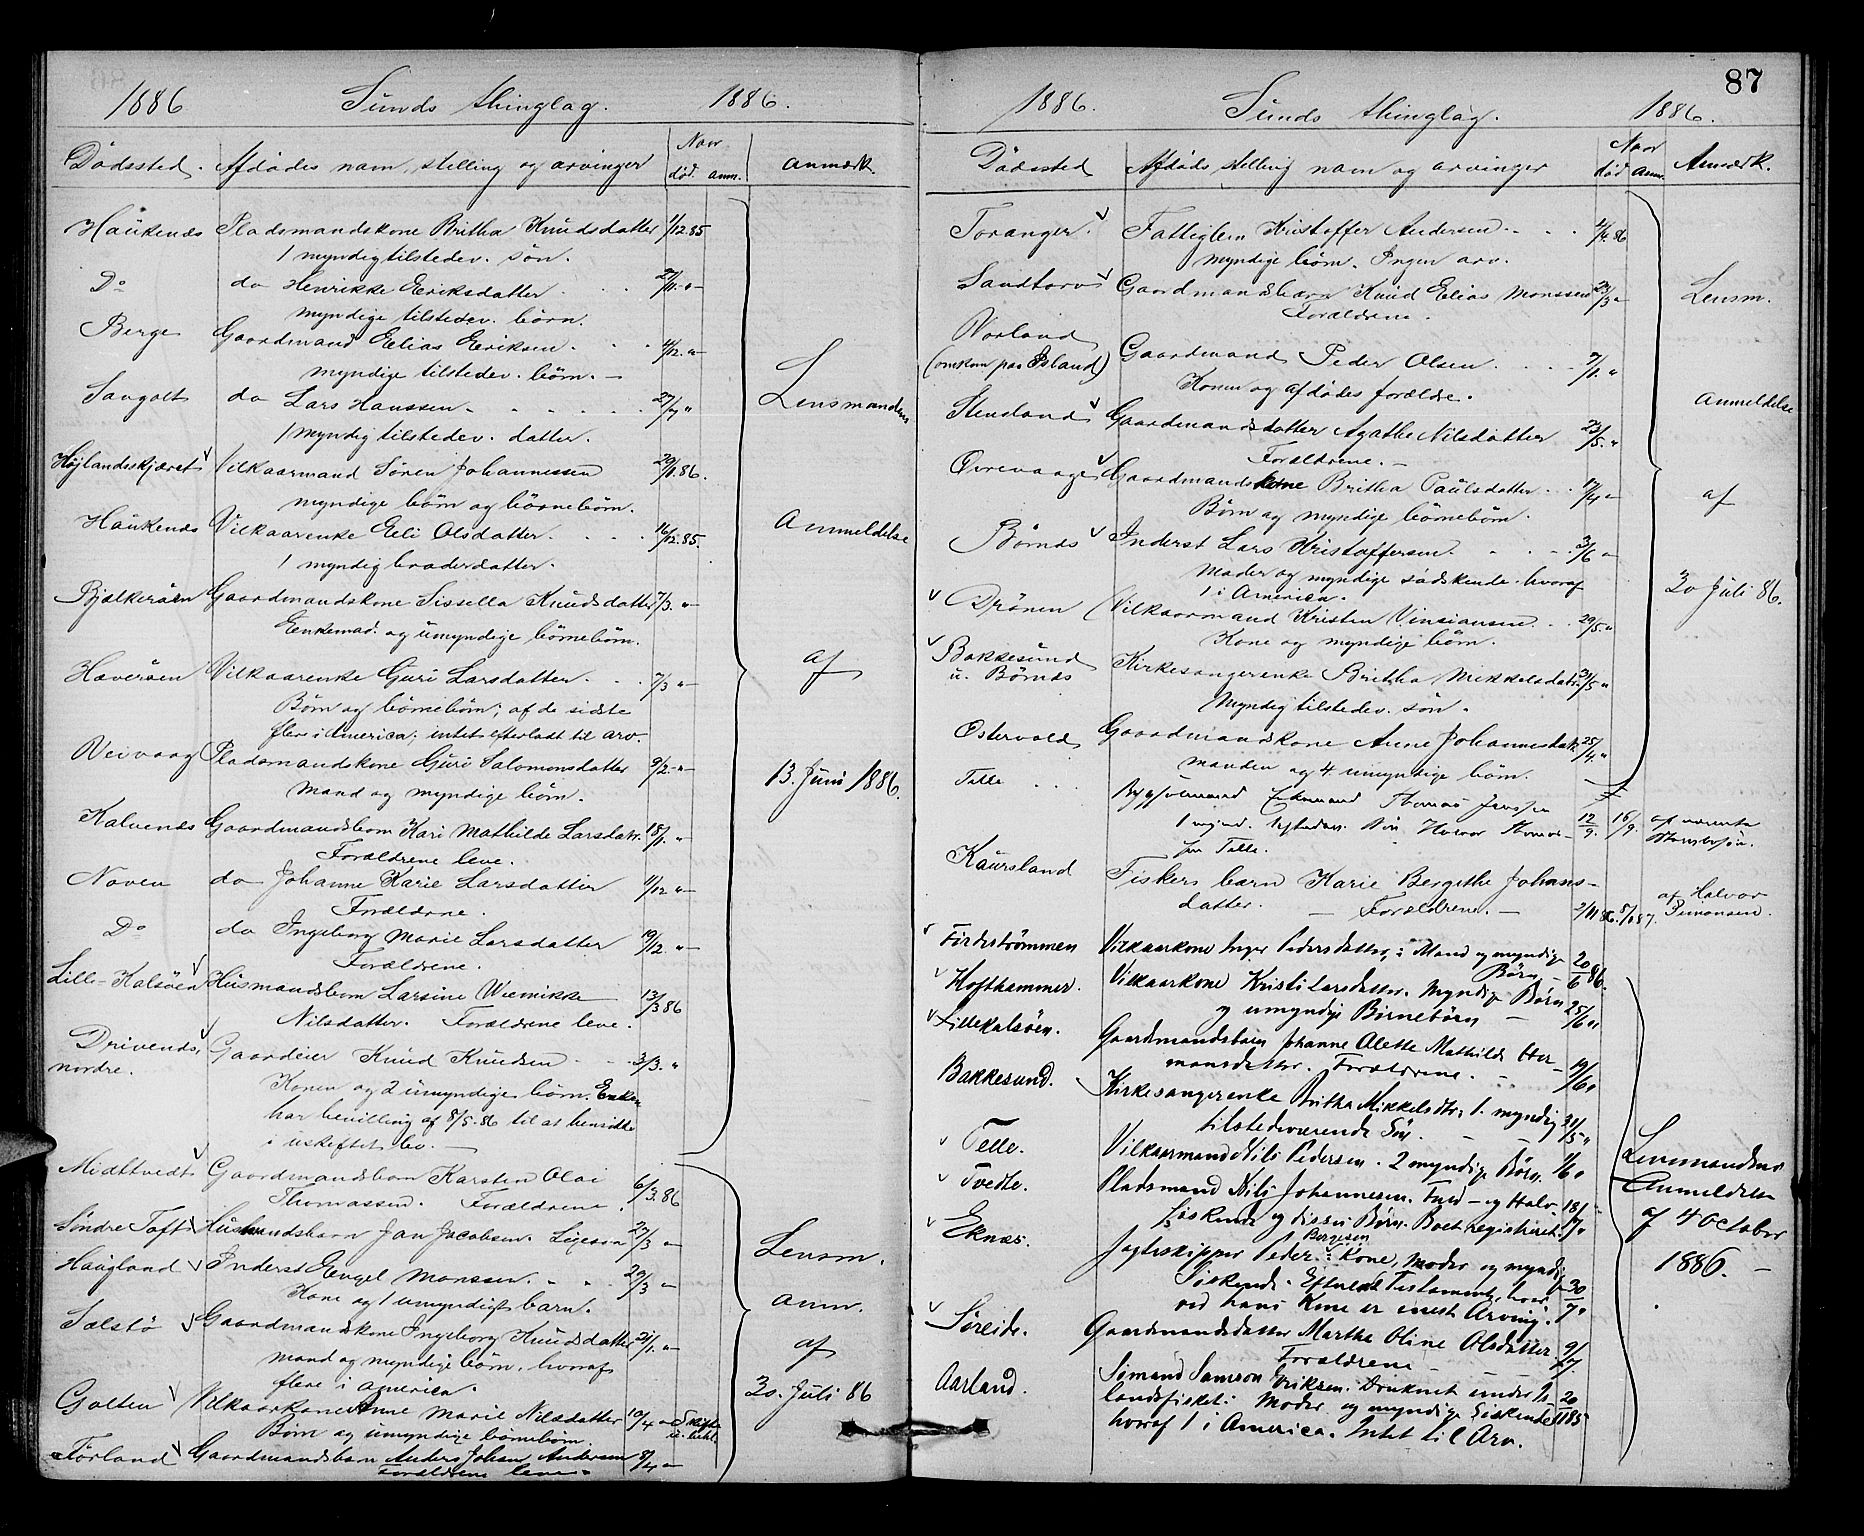 1886 Sunds thinglag. 1886.
Dödssted. Afdödes navn, stilling og arvinger Naar död. anm. Anmærk.
Haukenæs Pladsmandskone Britha Knudsdatter 1/12.85
1 myndig tilstedev. sön.
Do do Henrikke Eriksdatter 27/11.-"-
myndige tilstedev. börn.
Berge Gaardmand Elias Eriksen. 4/12.-"-
myndige tilstedev. börn.
Sangolt do Lars Hanssen. 27/7 "
1 myndig tilstedev. datter.
Lensmandens
Höjlandsskjæret Vilkaarmand Sören Johannessen 20/1.86.
myndige börn og börnebörn.
Haukenæs Vilkaarenke Eli Olsdatter. 16/12.85.
1 myndig broderdatter.
Anmeldelse
Bjelkeröen Gaardmandskone Sissella Knudsdatter 7/3. "-
Enkemand og umyndige börnebörn.
Haveröen Vilkaarenke Guri Larsdatter. 7/3 "-
Börn og börnebörn; af de sidste
flere i America; intet efterladt til arv.
af
Veivaag Pladsmandskone Guri Salomonsdatter 9/2.-"-
Mand og myndige börn.
13. Juni 1886.
Kalvenæs Gaardmandsbarn Kari Mathilde Larsdatr. 18/1. "
Forældrene leve.
Noven do Johanne Karie Larsdatter 11/12 "-
Forældrene.
Do do Ingeborg Marie Larsdatter 19/12. "-
Forældrene.
Lille-Kalsöen Husmandsbarn Larsine Wiemikke 13/3 86
Nilsdatter. Forældrene leve.
Drivenæs, Gaardeier Knud Knudsen 3/3. "
nordre. Konen og 2 umyndige börn. Enken
har bevilling af 8/5.86 til at hensidde
i uskiftet bo.
Midttvedt Gaardmandsbarn Karsten Olai 6/3.86
Thomassen. Forældrene.
Söndre Toft Husmandsbarn Jan Jacobsen. Ligesaa 27/3 "-
Haugland Inderst Engel Monssen. 29/3 "-
Kone og 1 umyndigt barn.
Lensm.
anm.
Sælstö Gaardmandskone Ingeborg Knudsdatter 21/1. "-
mand og myndige börn, hvoraf
flere i America.
af
30. Juli 86
Golten Vilkaarkone Anne Marie Nilsdatter 19/4 "-
Börn og umyndige börnebörn
Förland Gaardmandsbarn Anders Johan Andersen 8/4 "-
Forældrene leve.
87
1886. Sunds thinglag. 1886.
Dödssted Afdöds stilling navn og arvinger Naar död Anm. Anmærk.
Toranger. Fattiglem Kristoffer Andersen. 4/4.86
myndige börn. Ingen arv.
Sandtorv Gaardmandsbarn Knud Elias Monssen 23/3 "
Forældrene.
Lensm.
Vorland
(omkom paa Island) Gaardmand Peder Olsen. 7/1. "
Konen og afdödes forældre.
Anmeldelse
Stenland Gaardmandsdatter Agathe Nilsdatter 23/5. "
Forældrene.
Övrevaage Gaardmandskone Britha Paulsdatter 17/4 "
Börn og myndige börnebörn.
af
Börnæs Inderst Lars Kristoffersen. 3/6 "
Moder og myndige södskende hvoraf
1 i America.
30 Juli 86.
Drönen Vilkaarmand Kristen Vinsiansen. 29/5. "
Kone og myndige börn.
Bakkesund
u. Börnæs Kirkesangerenke Britha Mikkelsdatr. 29/5 "
Myndig tilstedev. sön.
Ostervold Gaardmandskone Anne Johannesdatr. 25/4. "
manden og 4 umyndige börn.
Telle Enkemand Thomas Jensen 12/9. 16/9.
1 mynd. Sön Thomas-
sen Telle.
Kaursland Fiskers barn Karie Bergithe Johans-
datter. Forældrene. 2/11 86. 5/1 87.
af Halvor
Simonsen.
Fördeströmmen Vilkaarkone Inger Pedersdatter: Mand og myndige 20/6 86.
Börn
Kofthammer. Vilkaarkone Kristi Larsdatter. Myndige Börn 25/6 "
og umyndige Börnebörn
Lillekalsöen. Gaardmandsbarn Johanne Alette Mathilde Otter-
mansdatter. Forældrene. 19/6 "
Bakkesund. Kirkesangerenke Britha Mikkelsdtr: 1. myndig
tilstedeværende Sön. 29/5 "
Telle. Vilkaarmand Nils Pedersen. 2 myndige Börn. 1/6 "
Lensmandens
Tvedte. Pladsmand Nils Johannesen. Fuld- og Halv-
söskende og disses Börn. Boet registreret. 18/7 "
Anmeldelse
af 4 October
1886.
Eknæs. Jagteskipper Peder Bergesen: Kone, Moder og myndige
Söskende. Efterladt Testament, hvor-
ved hans Kone er eneste Arving. 30/7 "
Söreide. Gaardmandsdatter Martha Oline Olsdatter. 9/7.
Forældrene
Aarland. Sömand Samson Eriksen. Druknet under Is-
landsfisket: Moder og myndige Söskende 20/11 85
hvoraf 1 i America. Intet til Arv.